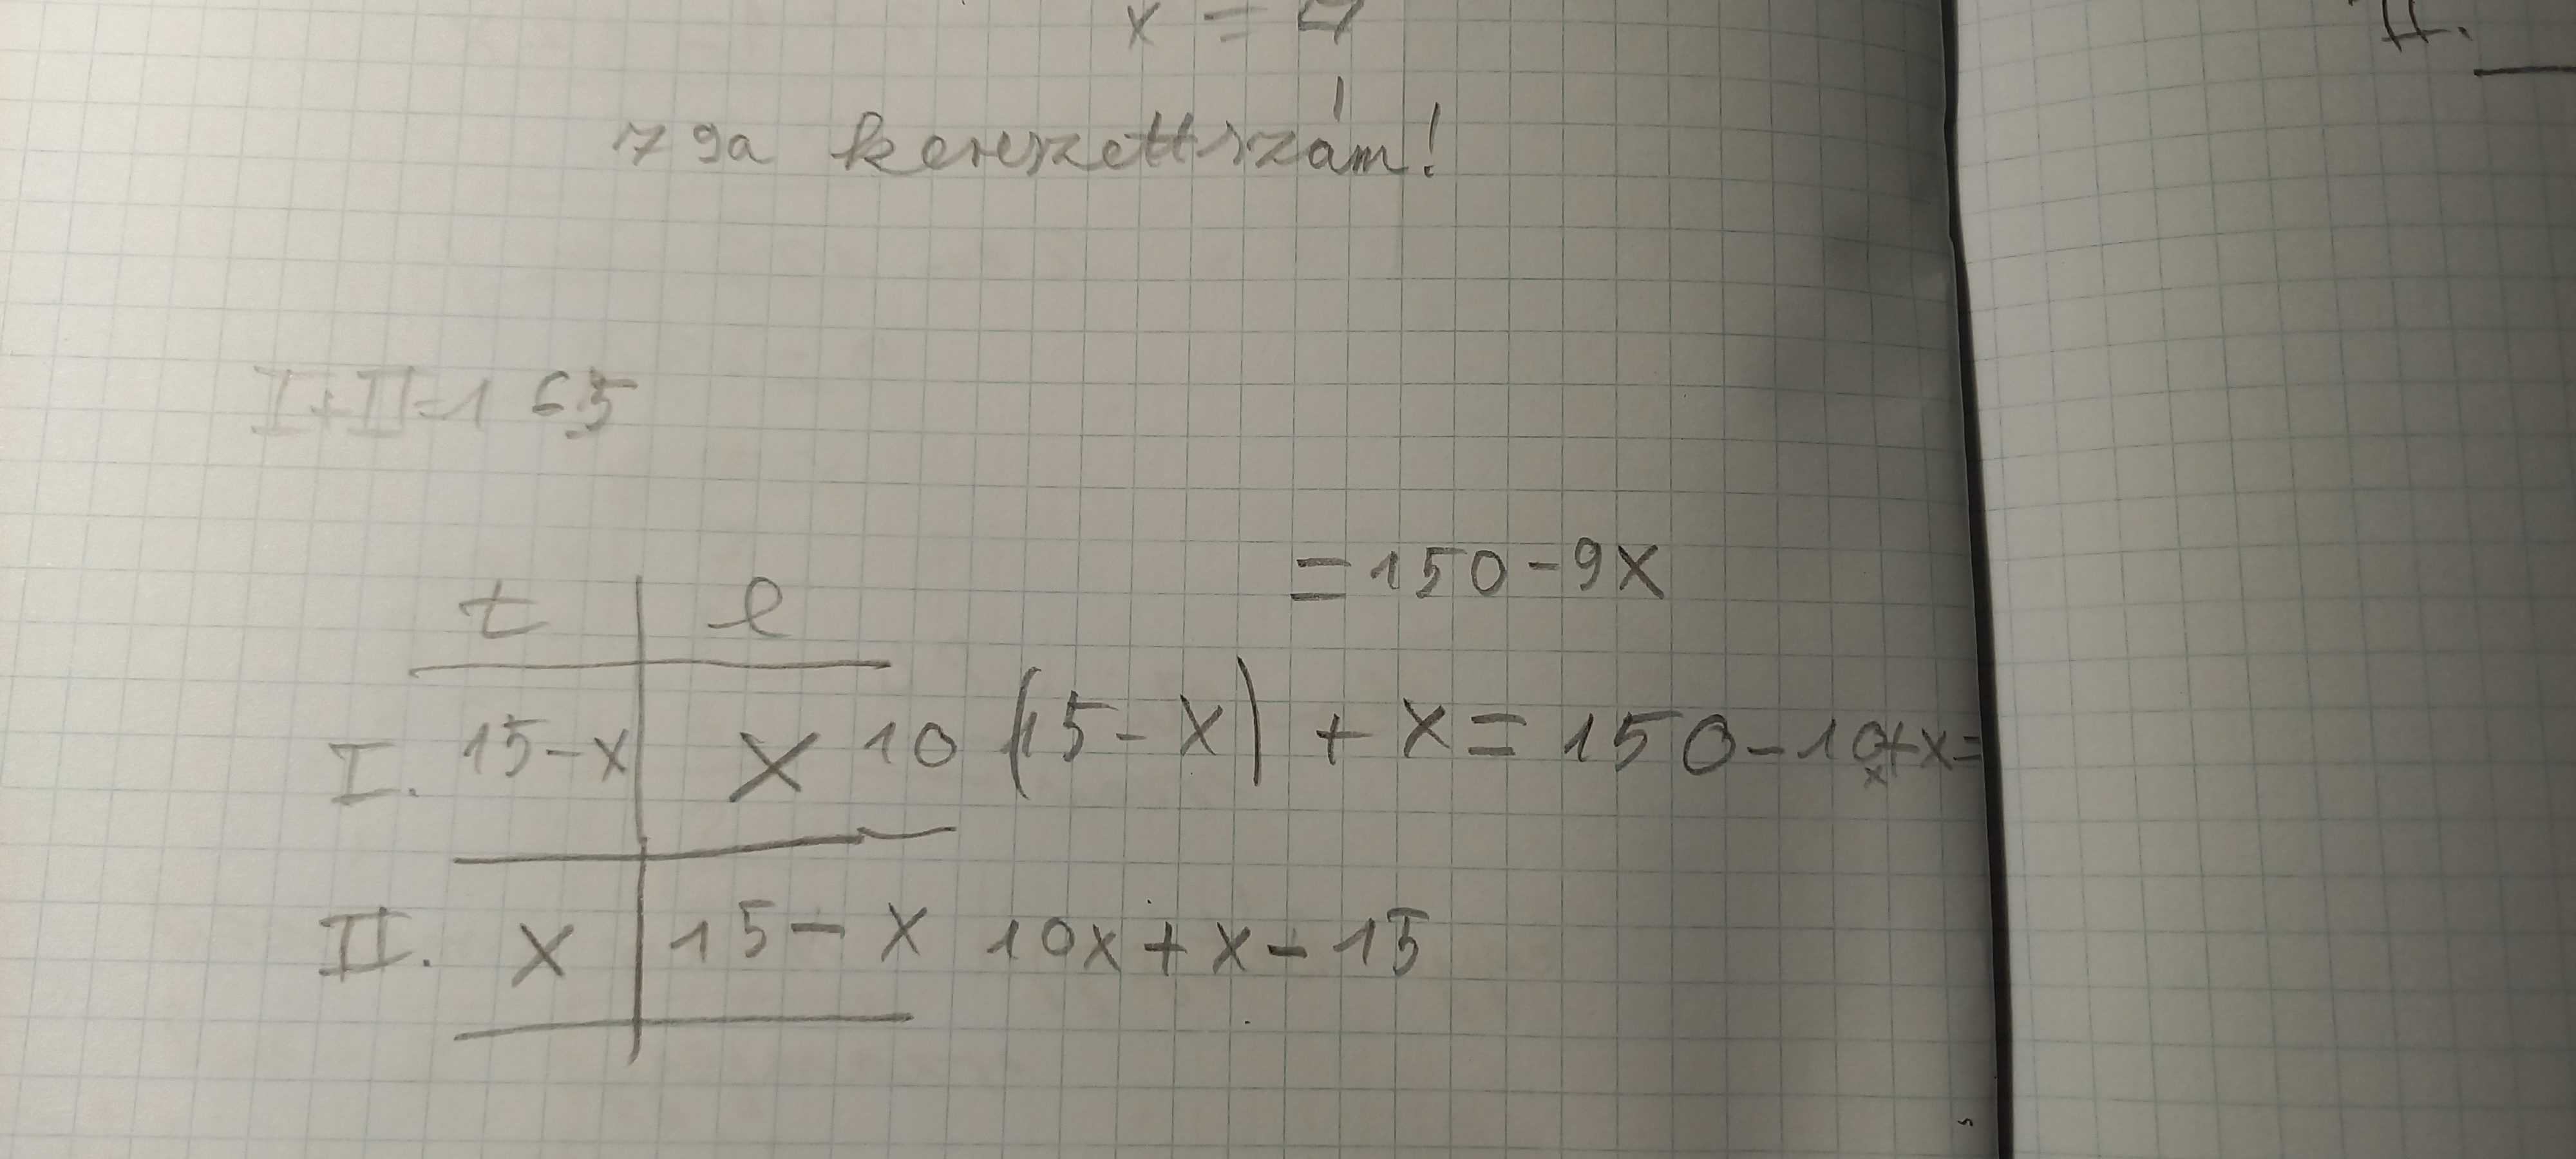 x =
II.
79 a keresett szám!
I+II=165
= 150 - 9x
t e
I. 15-x x 10 (15-x) + x = 150 - 10x + x =
II. x 15 - x 10x + x - 15